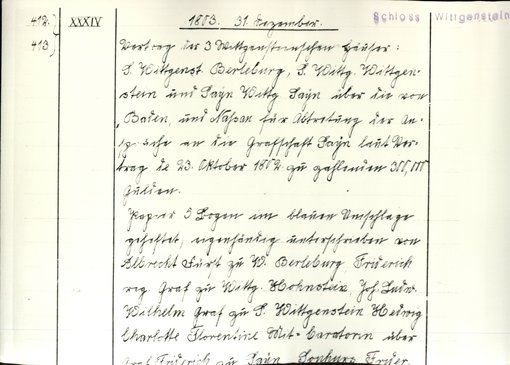 412.) XXXIV 1803. 31. Dezember. Schloss Wittgenstein
413.) Vertrag der 3 Wittgensteinschen Häuser:
S. Wittgenst. Berleburg, S. Wittg. Wittgen-
stein und Sayn Wittg. Sayn über die von
Baden, und Nassau für Abtretung der An-
sprüche an die Grafschaft Sayn laut Ver-
trag de 23. Oktober 1802 zu zahlenden 300,000
Gulden.
Papier 5 Bogen im blauen Umschlage
geheftet, eigenhändig unterschrieben von
Albrecht Fürst zu W. Berleburg, Friderich
reg. Graf zu Wittg. Hohnstein, Joh. Ludw.
Wilhelm Graf zu S. Wittgenstein Hedwig
Charlotte Florentine Mit-Curatorin über
Graf Friderich zu Sayn